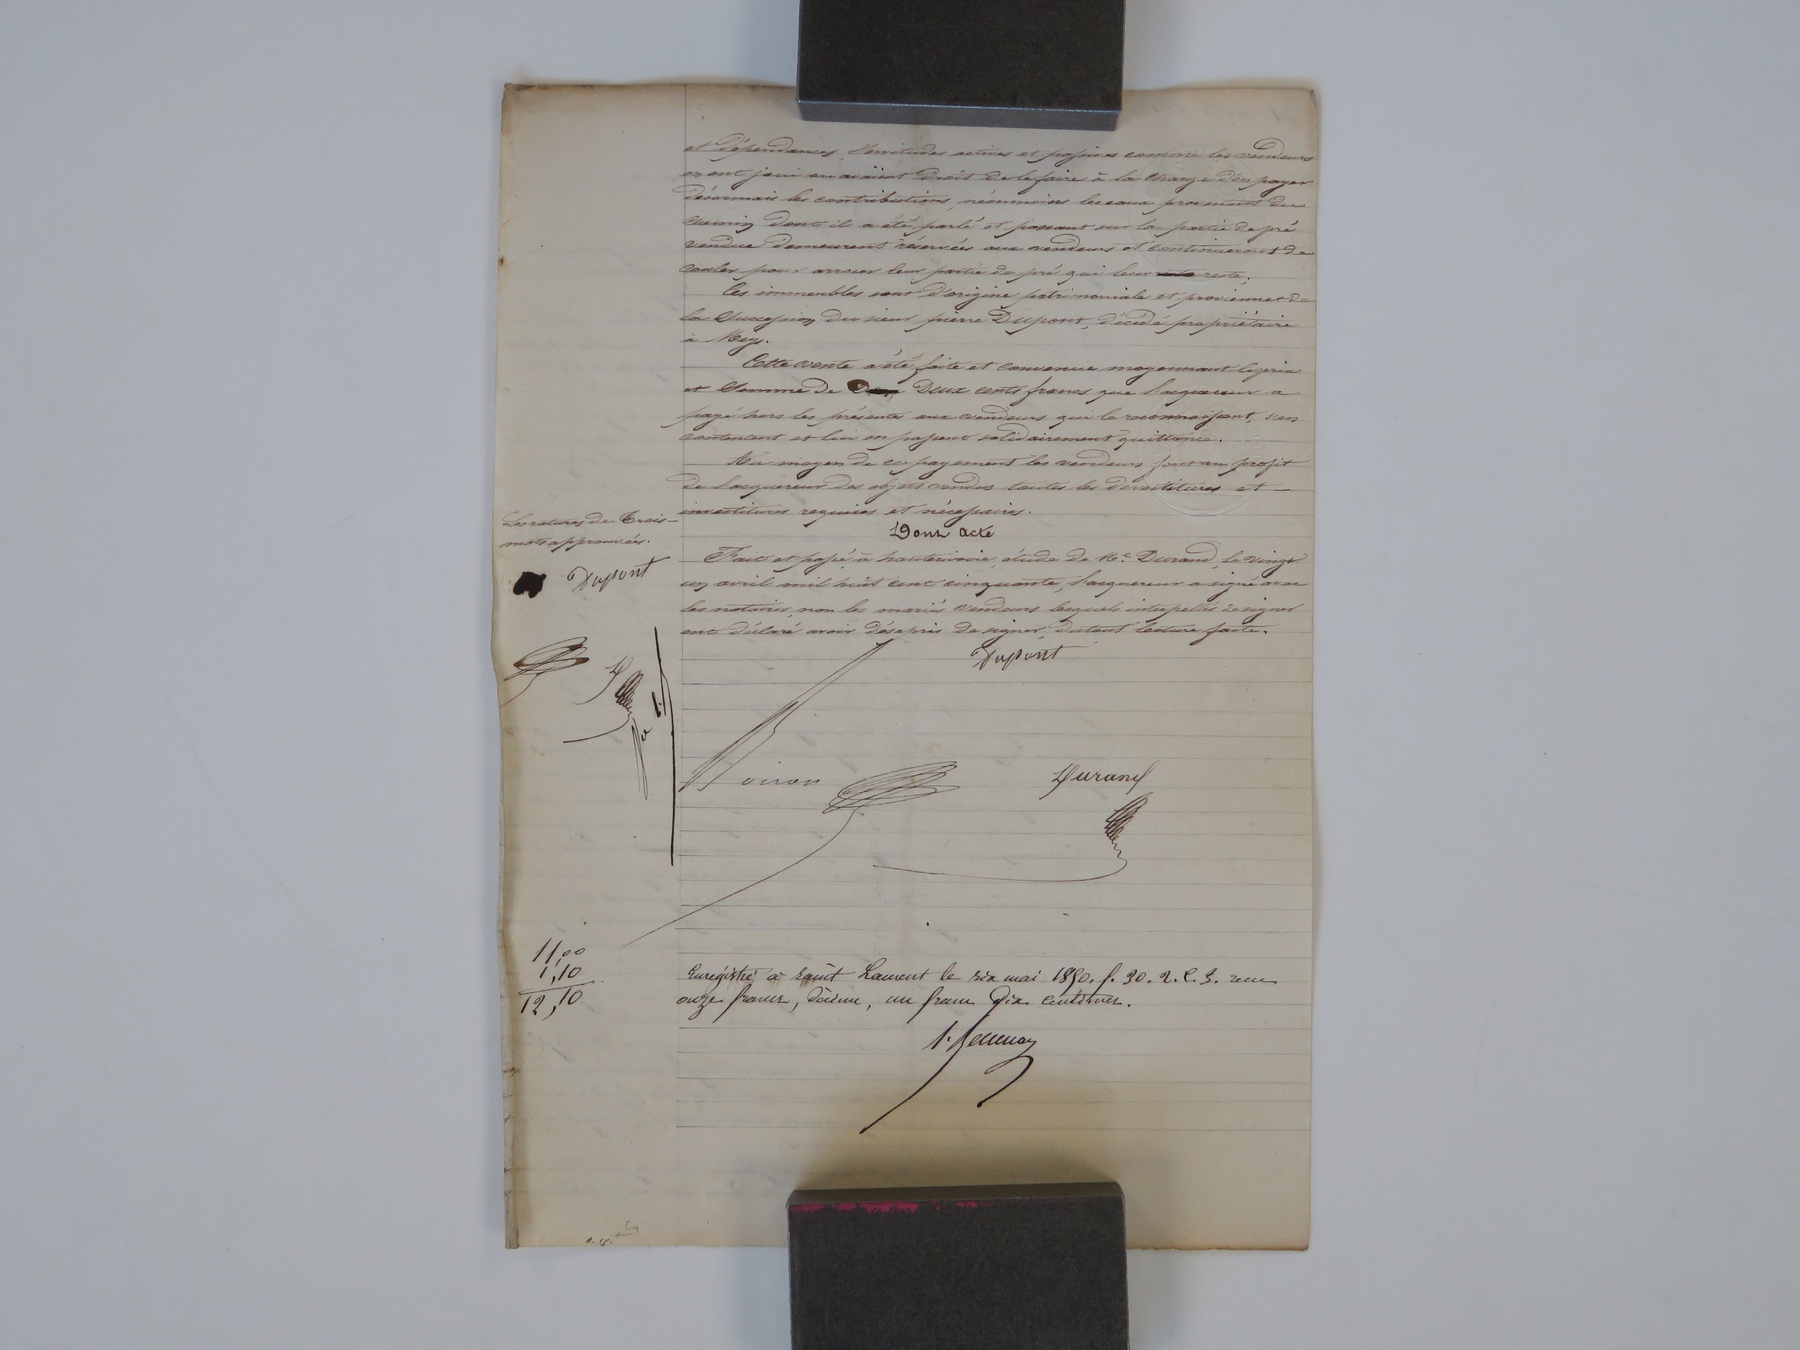 et dépendances, servitudes actives et passives comme les vendeurs
en ont joui ou avaient droit de le faire à la charge d'en payer
désormais les contributions, néanmoins les eaux provenant du
chemin dont il a été parlé et passant sur la partie de pré
vendue demeurent réservées aux vendeurs et continueront de
couler pour arroser leur partie de pré qui leur reste.
Ces immeubles sont d'origine patrimoniale et proviennet de
la succession du sieur pierre Dupont, décédé propriétaire
à Meys.
Cette vente a été faite et convenue moyennant le prix
et somme de Deux cents francs que l'acquereur a
payé hors les présentes aux vendeurs qui le reconnaissent, s'en
contentent et lui en passent solidairement quittance.
Au moyen de ce payement les vendeurs font au profit
de l'acquereur des objets vendus toutes les devestitures et
investitures requises et nécessaires.
Dont acte
Les ratures de Trois
mots approuvées.
Dupont
Fait et passé à hauterivoire, étude de Me. Durand, le vingt
un avril mil huit cent cinquante, l'acquereur a signé avec
les notaires, non les mariés vendeurs lesquels interpellés de signer
ont déclaré avoir désapris de signer, du tout lecture faite.
Dupont
Voiron
Durand
11,00
1,10
12,10
Enregistré à saint Laurent le six mai 1850. f. 30. r. C. 3. reçu
onze francs, décime, un franc dix centimes.